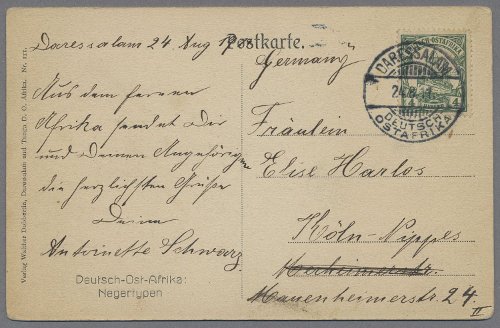 Daressalam 24 Aug 19
Aus dem fernen
Afrika sendet Dir
und Deinen Angehörigen
die herzlichsten Grüße
Deine
Antoinette Schwarz
Deutsch-Ost-Afrika:
Negertypen
Verlag Walther Dobbertin, Daressalam und Tanga D. O. Afrika. Nr. 111.
Postkarte.
Germany
Fräulein
Elise Harlos
Köln-Nippes
Mauenheimerstr. 24
II
DEUTSCH-OSTAFRIKA
DARESSALAM
24.8.11
DEUTSCH
OSTAFRIKA
4